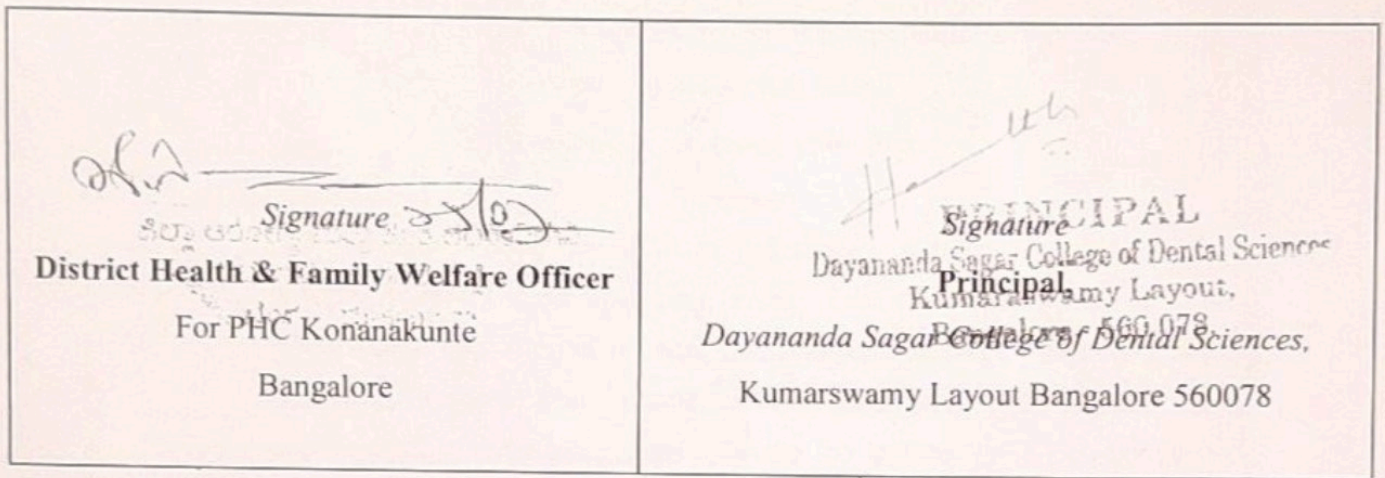 Signature
District Health & Family Welfare Officer
For PHC Konanakunte
Bangalore
PRINCIPAL
Signature
Dayananda Sagar College of Dental Sciences
Principal,
Kumaraswamy Layout,
Bangalore - 560 078.
Dayananda Sagar College of Dental Sciences,
Kumarswamy Layout Bangalore 560078